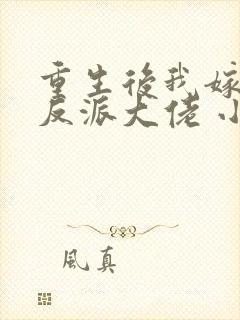 重生後我嫁
反派大佬小
風真